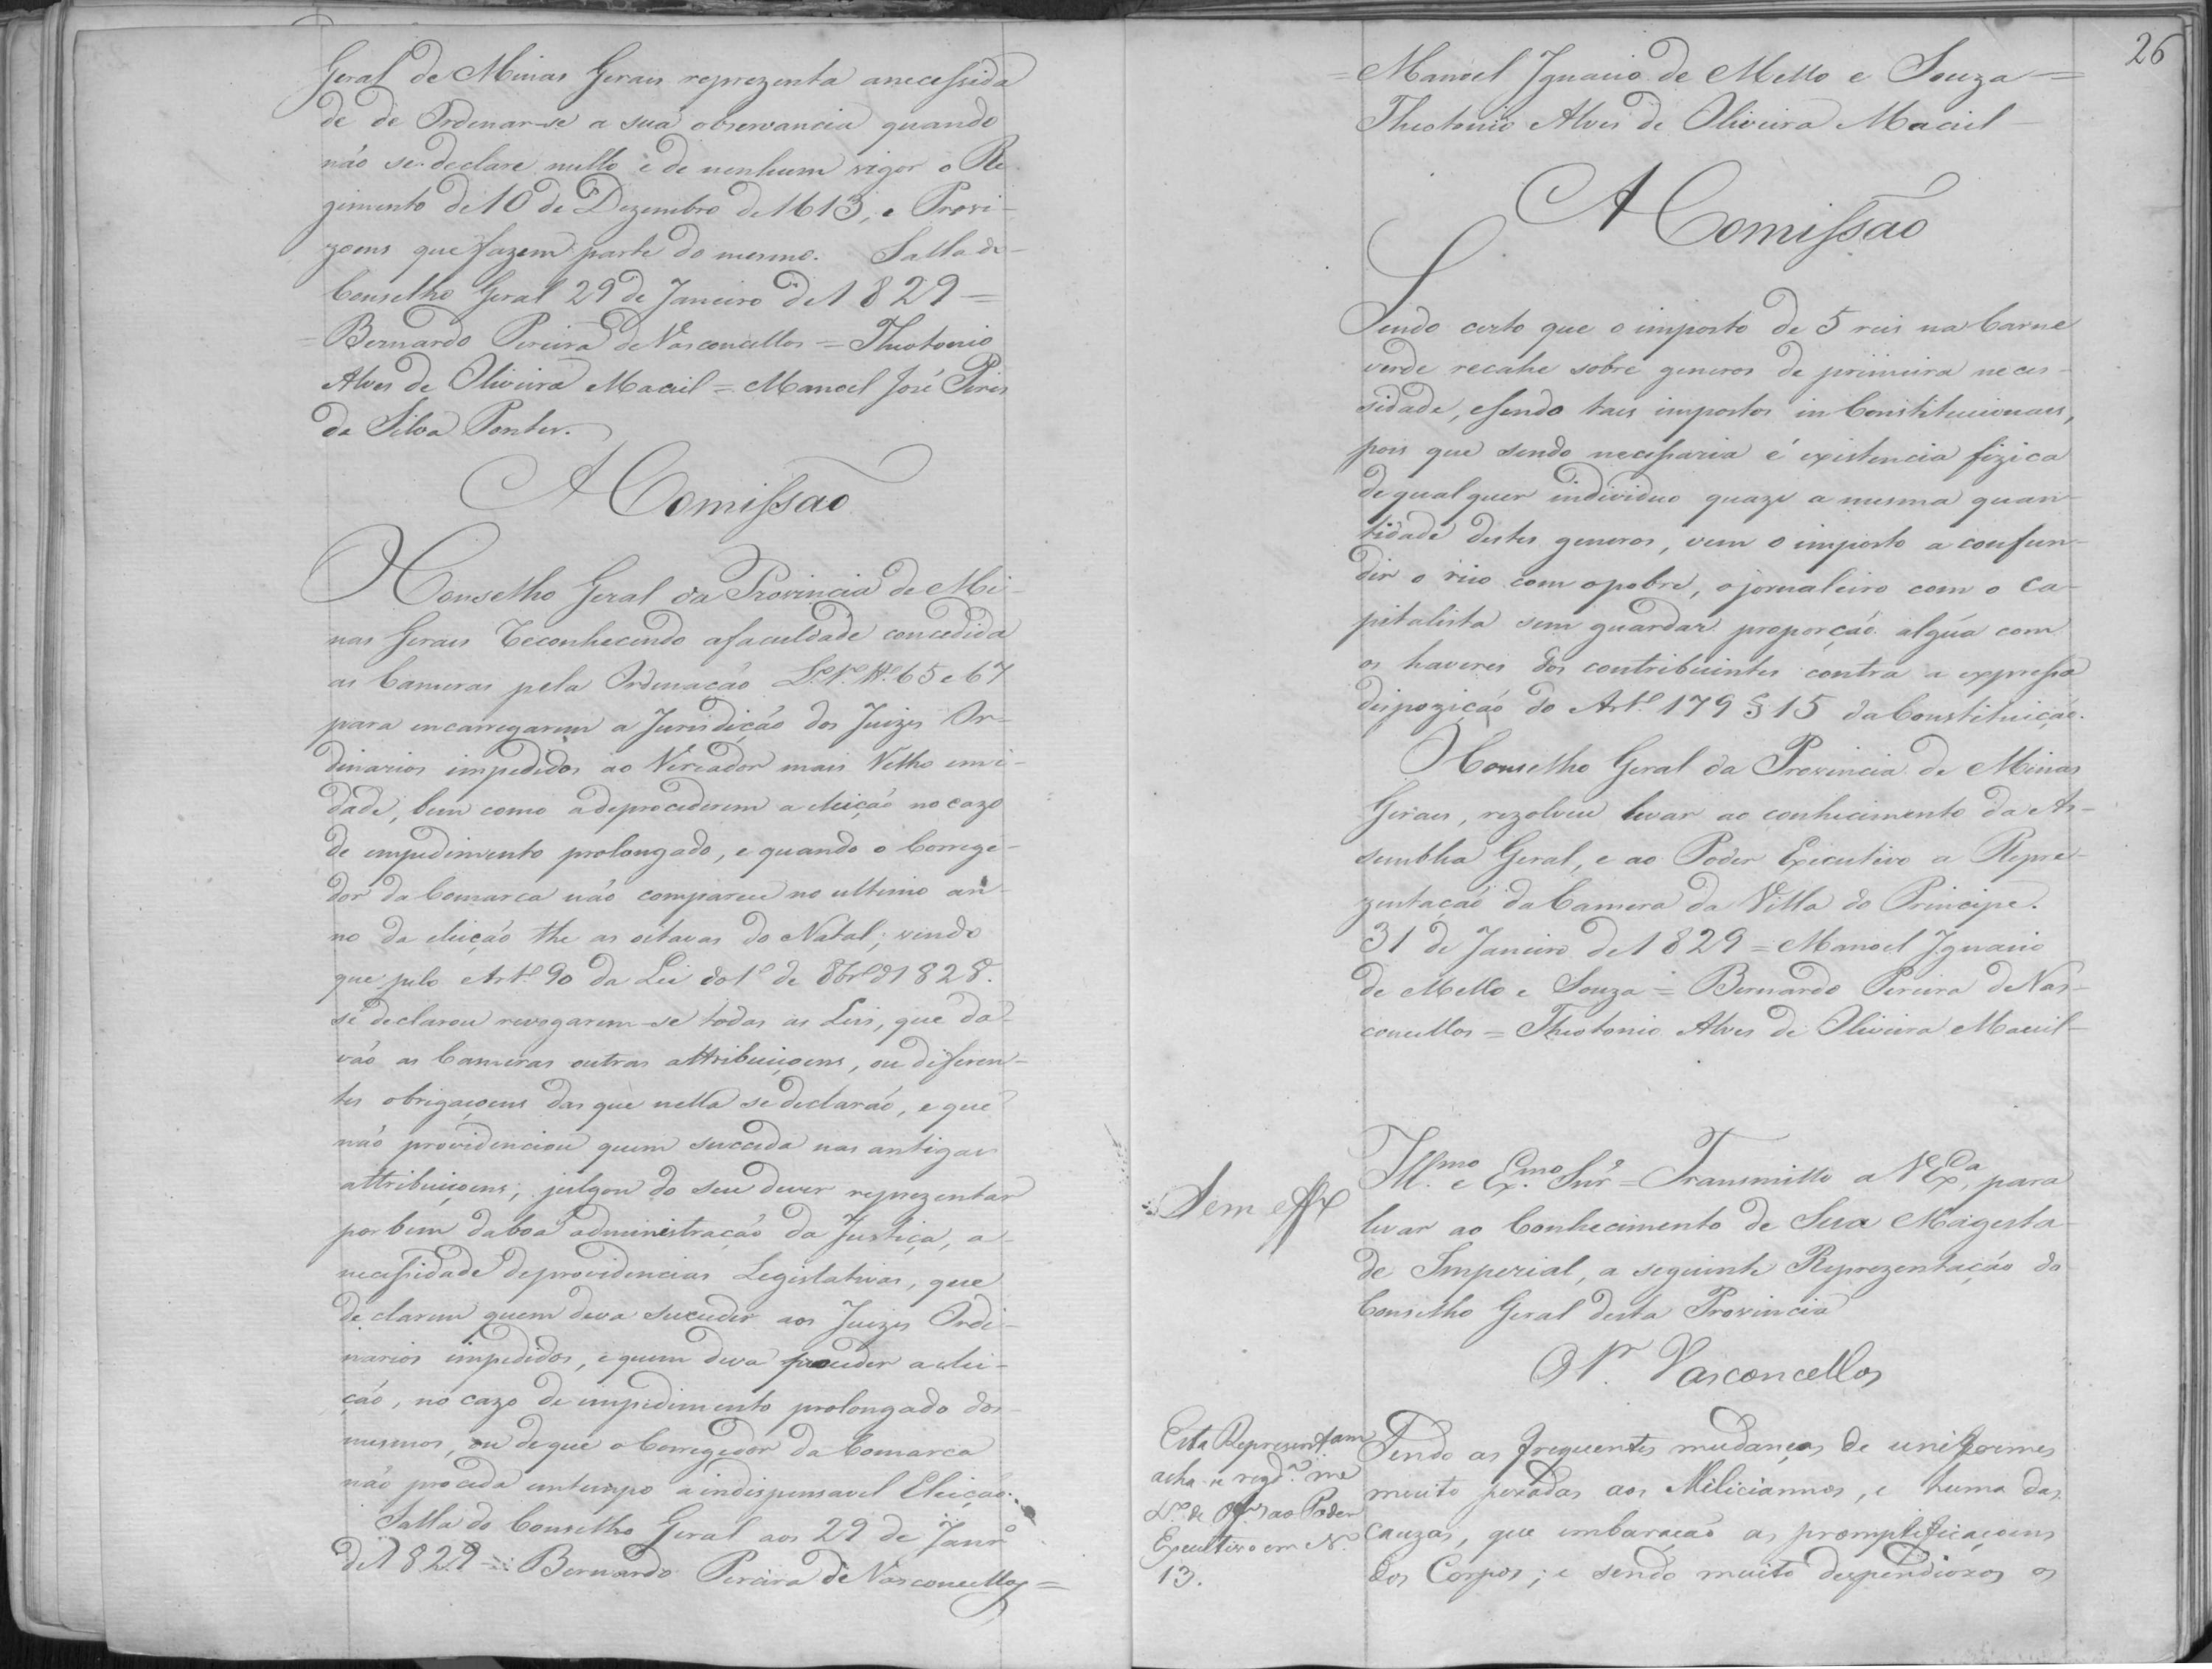 Geral de Minas Gerais reprezenta anecessida
de de Ordenar-se a sua observancia quando
não se declare nullo e de nenhum vigor o Re
gimento de 10 de Dezembro de 1613, e Provi-
zoens que fazem parte do mesmo. Salla do
Conselho Geral 29 de Janeiro de 1829 =
= Bernardo Pereira de Vasconcellos = Theotonio
Alves de Oliveira Maciel = Manoel José Pires
da Silva Pontes.
A Comissão
O Conselho Geral da Provincia de Mi-
nas Gerais Reconhecendo afaculdade concedida
as Cameras pela Ordenação L.º 1.º tt.º 65 e 67
para encarregarem a Jurisdição dos Juizes Or-
dinarios impedidos ao Vereador mais Velho emi-
dade, bem como adeprocederem a eleição no cazo
de empedimento prolongado, e quando o Correge-
dor da Comarca não comparece no ultimo an-
no da eleição the as oitavas do Natal; vendo
que pelo Art.º 90 da Lei do 1.º de 8br.º d 1828.
se declarou revogarem-se todas as Leis, que da-
vão as Cameras outras attribuiçoens, ou diferen-
tes obrigaçoens das que nella se declarão, e que
não providenciou quem succeda nas antigas
attribuiçoens; julgou do seu dever reprezentar
por bem daboa administração da Justiça, a-
necessidade deprovidencias Legislativas, que
declarem quem deva suceder aos Juizes Ordi-
narios impedidos, e quem deva proceder a elei-
ção, no cazo de impedimento prolongado dos
mesmos, ou de que o Corregedor da Comarca
não proceda emtempo a indispensavel Eleição.
Salla do Conselho Geral aos 29 de Janr.º
de 1829 = Bernardo Pereira de Vasconcellos =
26
= Manoel Ignacio de Mello e Souza =
Theotonio Alves de Oliveira Maciel
A Comissão
Sendo certo que o imposto de 5 reis na Carne
verde recahe sobre generos de primeira neces-
sidade, esendo taes impostos in Constitucionaes,
pois que sendo necessaria é existencia fizica
dequalquer individuo quaze a mesma quan-
tidade destes generos, vem o imposto a confun-
dir o rico com opobre, o jornaleiro com o Ca-
pitalista sem guardar proporção algúa com
os haveres dos contribuintes contra a expressa
dispozição do Art.º 179 § 15 daConstituição.
O Conselho Geral da Provincia de Minas
Gerais, rezolveu levar ao conhecimento da As-
semblea Geral, e ao Poder Executivo a Repre-
zentação da Camera da Villa do Principe.
31 de Janeiro de 1829 = Manoel Ignacio
de Mello e Souza = Bernardo Pereira de Vas-
concellos = Theotonio Alves de Oliveira Maciel
Sem
Ill.mo e Ex.mo Snr = Transmitto a V Ex.a, para
levar ao Conhecimento de Sua Magesta
de Imperial, a seguinte Reprezentação do
Conselho Geral desta Provincia
O Sr. Vasconcellos
Esta Representam
acha-se regd.a no
L.º de Off.os ao Poder
Executivo em N.º
13.
Sendo as frequentes mudanças de uniformes
muito pezadas aos Miliciannos, e huma das
cauzas, que embaração as promptificaçoens
dos Corpos; e sendo muito despendiozos os